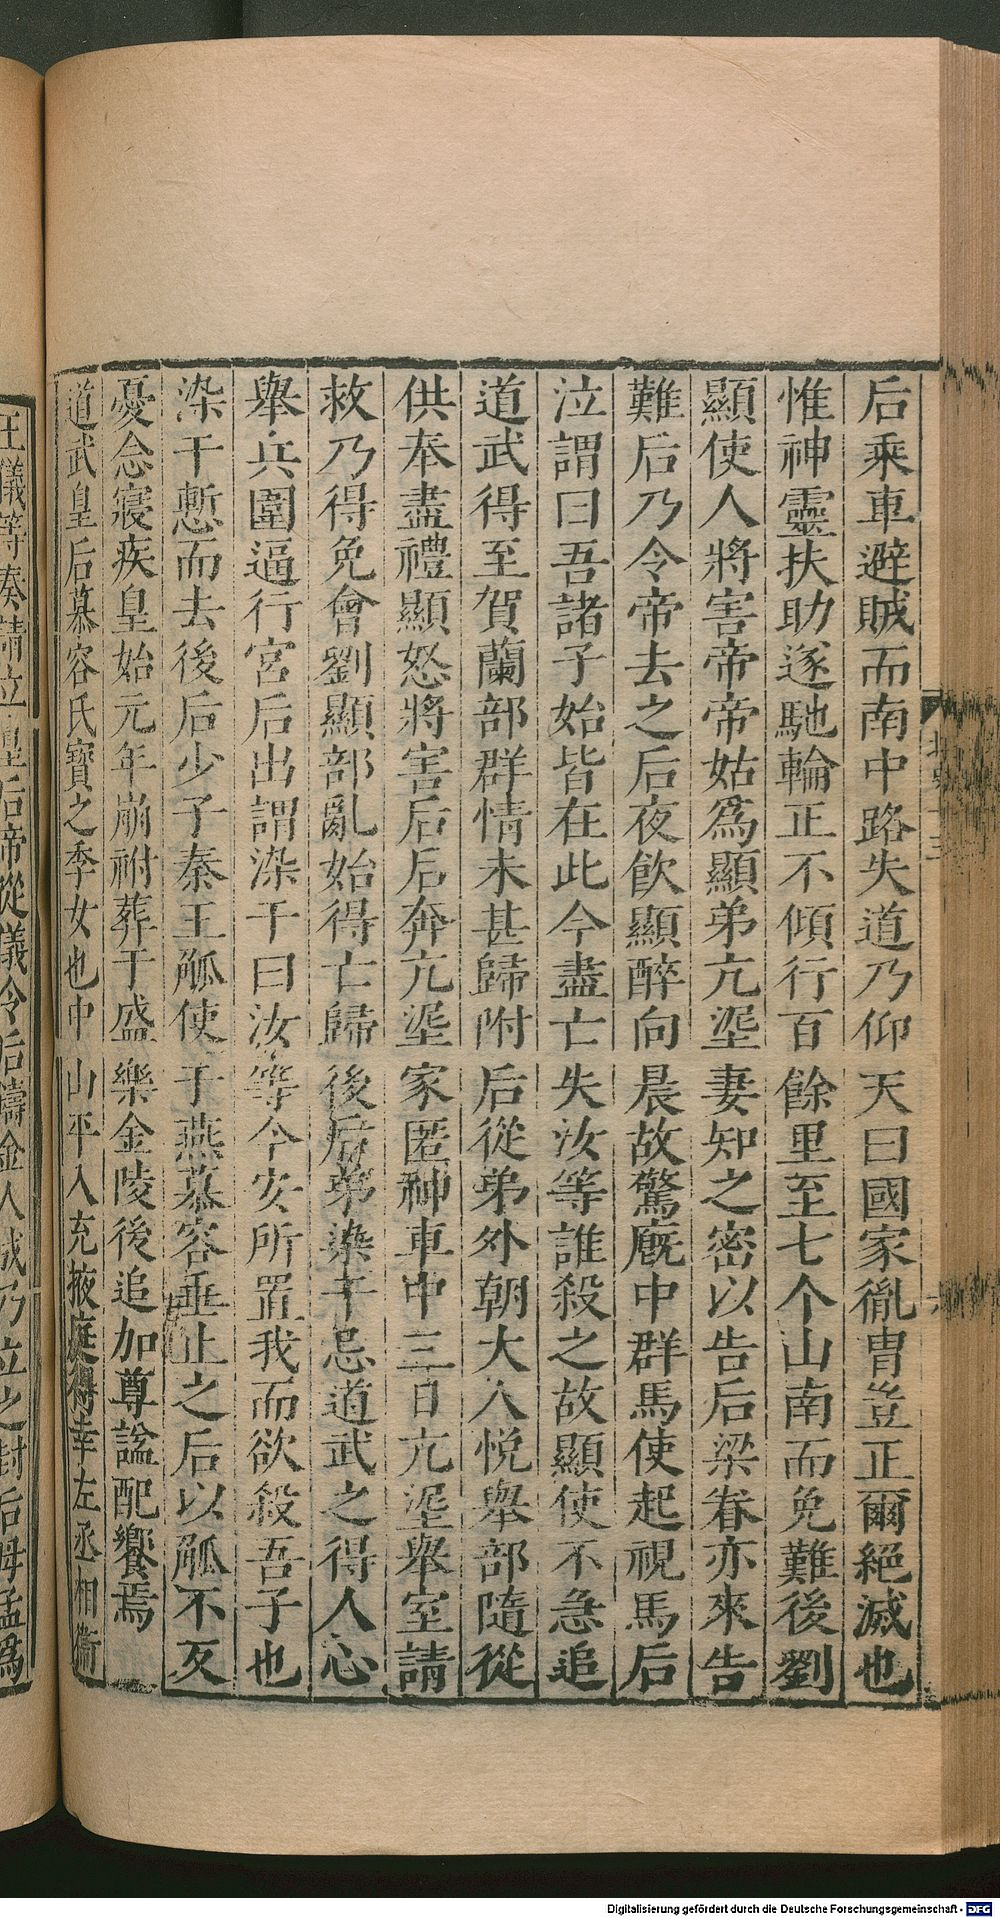 后乘車避賊而南中路失道乃仰天曰國家胤胄豈正爾絕滅也
惟神靈扶助遂馳輪正不傾行百餘里至七个山南而免難後劉
顯使人將害帝帝姑爲顯弟亢埿妻知之密以告后梁眷亦來告
難后乃令帝去之后夜飲顯醉向晨故驚廐中群馬使起視馬后
泣謂曰吾諸子始皆在此今盡亡失汝等誰殺之故顯使不急追
道武得至賀蘭部群情未甚歸附后從弟外朝大人悅舉部隨從
供奉盡禮顯怒將害后后奔亢埿家匿神車中三日亢埿舉室請
救乃得免會劉顯部亂始得亡歸後后弟染干忌道武之得人心
舉兵圍逼行宮后出謂染干曰汝等今安所置我而欲殺吾子也
染干慙而去後后少子秦王觚使于燕慕容垂止之后以觚不反
憂念寢疾皇始元年崩祔葬于盛樂金陵後追加尊諡配饗焉
道武皇后慕容氏寶之季女也中山平入充掖庭得幸左丞相衛
王儀等奏請立皇后帝從儀令后鑄金人成乃立之封后母孟爲
Digitalisierung gefördert durch die Deutsche Forschungsgemeinschaft - DFG